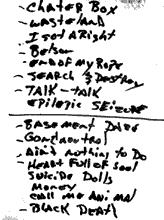 - Chater Box
- Wasteland
- I Sed Alright
- 
- End of My Rope
- Search & Destroy
- TALK - TALK
- Epilepic Seizure
- Basement Dive
- Gone
- Ain't nothing to Do
- Heart Full of Soul
Suicide Dolls
Money
- Call me Animal
- Black Death